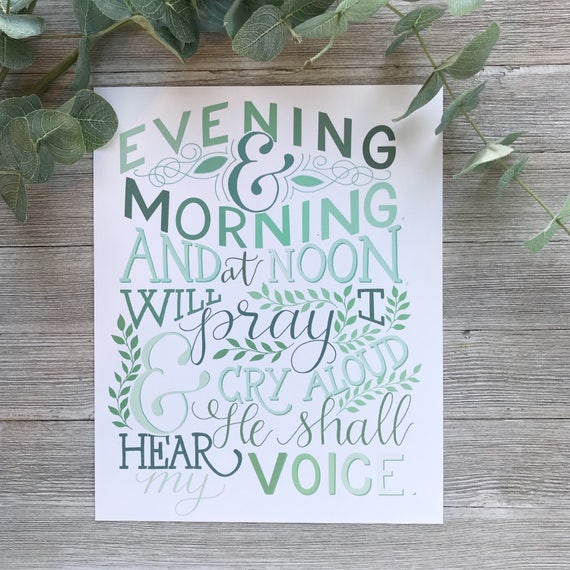 EVENING
&
MORNING,
AND at NOON,
WILL pray I
& CRY ALOUD
He shall
HEAR
my VOICE.